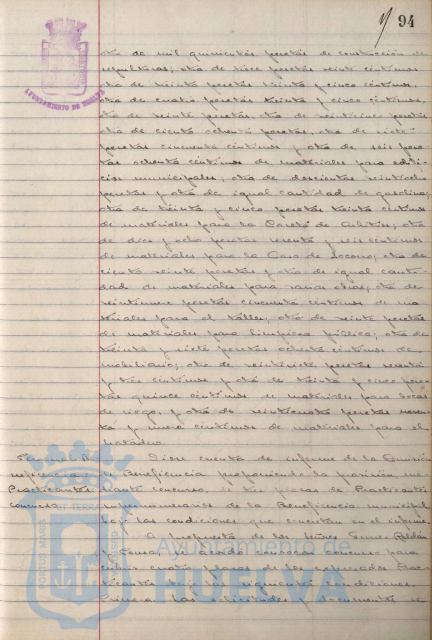 94
AYUNTAMIENTO DE HUELVA
otra de mil quinientas pesetas de construcción de
sepulturas; otra de trece pesetas veinte céntimos
otra de veinte pesetas treinta y cinco céntimos,
otra de cuatro pesetas treinta y cinco céntimos,
otra de veinte pesetas, otra de veinticinco pesetas
otra de ciento ochenta pesetas, otra de siete
pesetas cincuenta céntimos y otra de seis pese
tas ochenta céntimos de materiales para edifi
cios municipales; otra de doscientas veintiocho
pesetas y otra de igual cantidad de gasolina;
otra de treinta y cinco pesetas treinta céntimos
de materiales para la Caseta de Arbitrios; otra
de diez y ocho pesetas sesenta y seis céntimos
de materiales para la Casa de Socorro; otra de
ciento veinte pesetas y otra de igual canti-
dad de materiales para varias obras; otra de
veintinueve pesetas cincuenta céntimos de ma
teriales para el taller; otra de veinte pesetas
de materiales para limpieza pública; otra de
treinta y siete pesetas ochenta céntimos de
mobiliario; otra de veintisiete pesetas sesenta
y tres céntimos y otra de treinta y cinco pese
tas quince céntimos de materiales para bocas
de riego, y otra de veinticuatro pesetas noven
ta y nueve céntimos de materiales para el
matadero.
Personal B
neficencia
Practicantes
concurso
Dióse cuenta de informe de la Comisión
de Beneficencia proponiendo la provisión me-
diante concurso, de tres plazas de Practicantes
supernumerarios de la Beneficencia municipal
bajo las condiciones que constan en el informe.
A propuesta de los señores Gómez Roldán
y se acordó convocar concurso para
cubrir cuatro plazas de los expresados Prac
ticantes bajo las siguientes condiciones.
Primera. Las solicitudes y documentos se
PORTUS MARIS ET TERRAE CUSTODIA
Ayuntamiento de
HUELVA